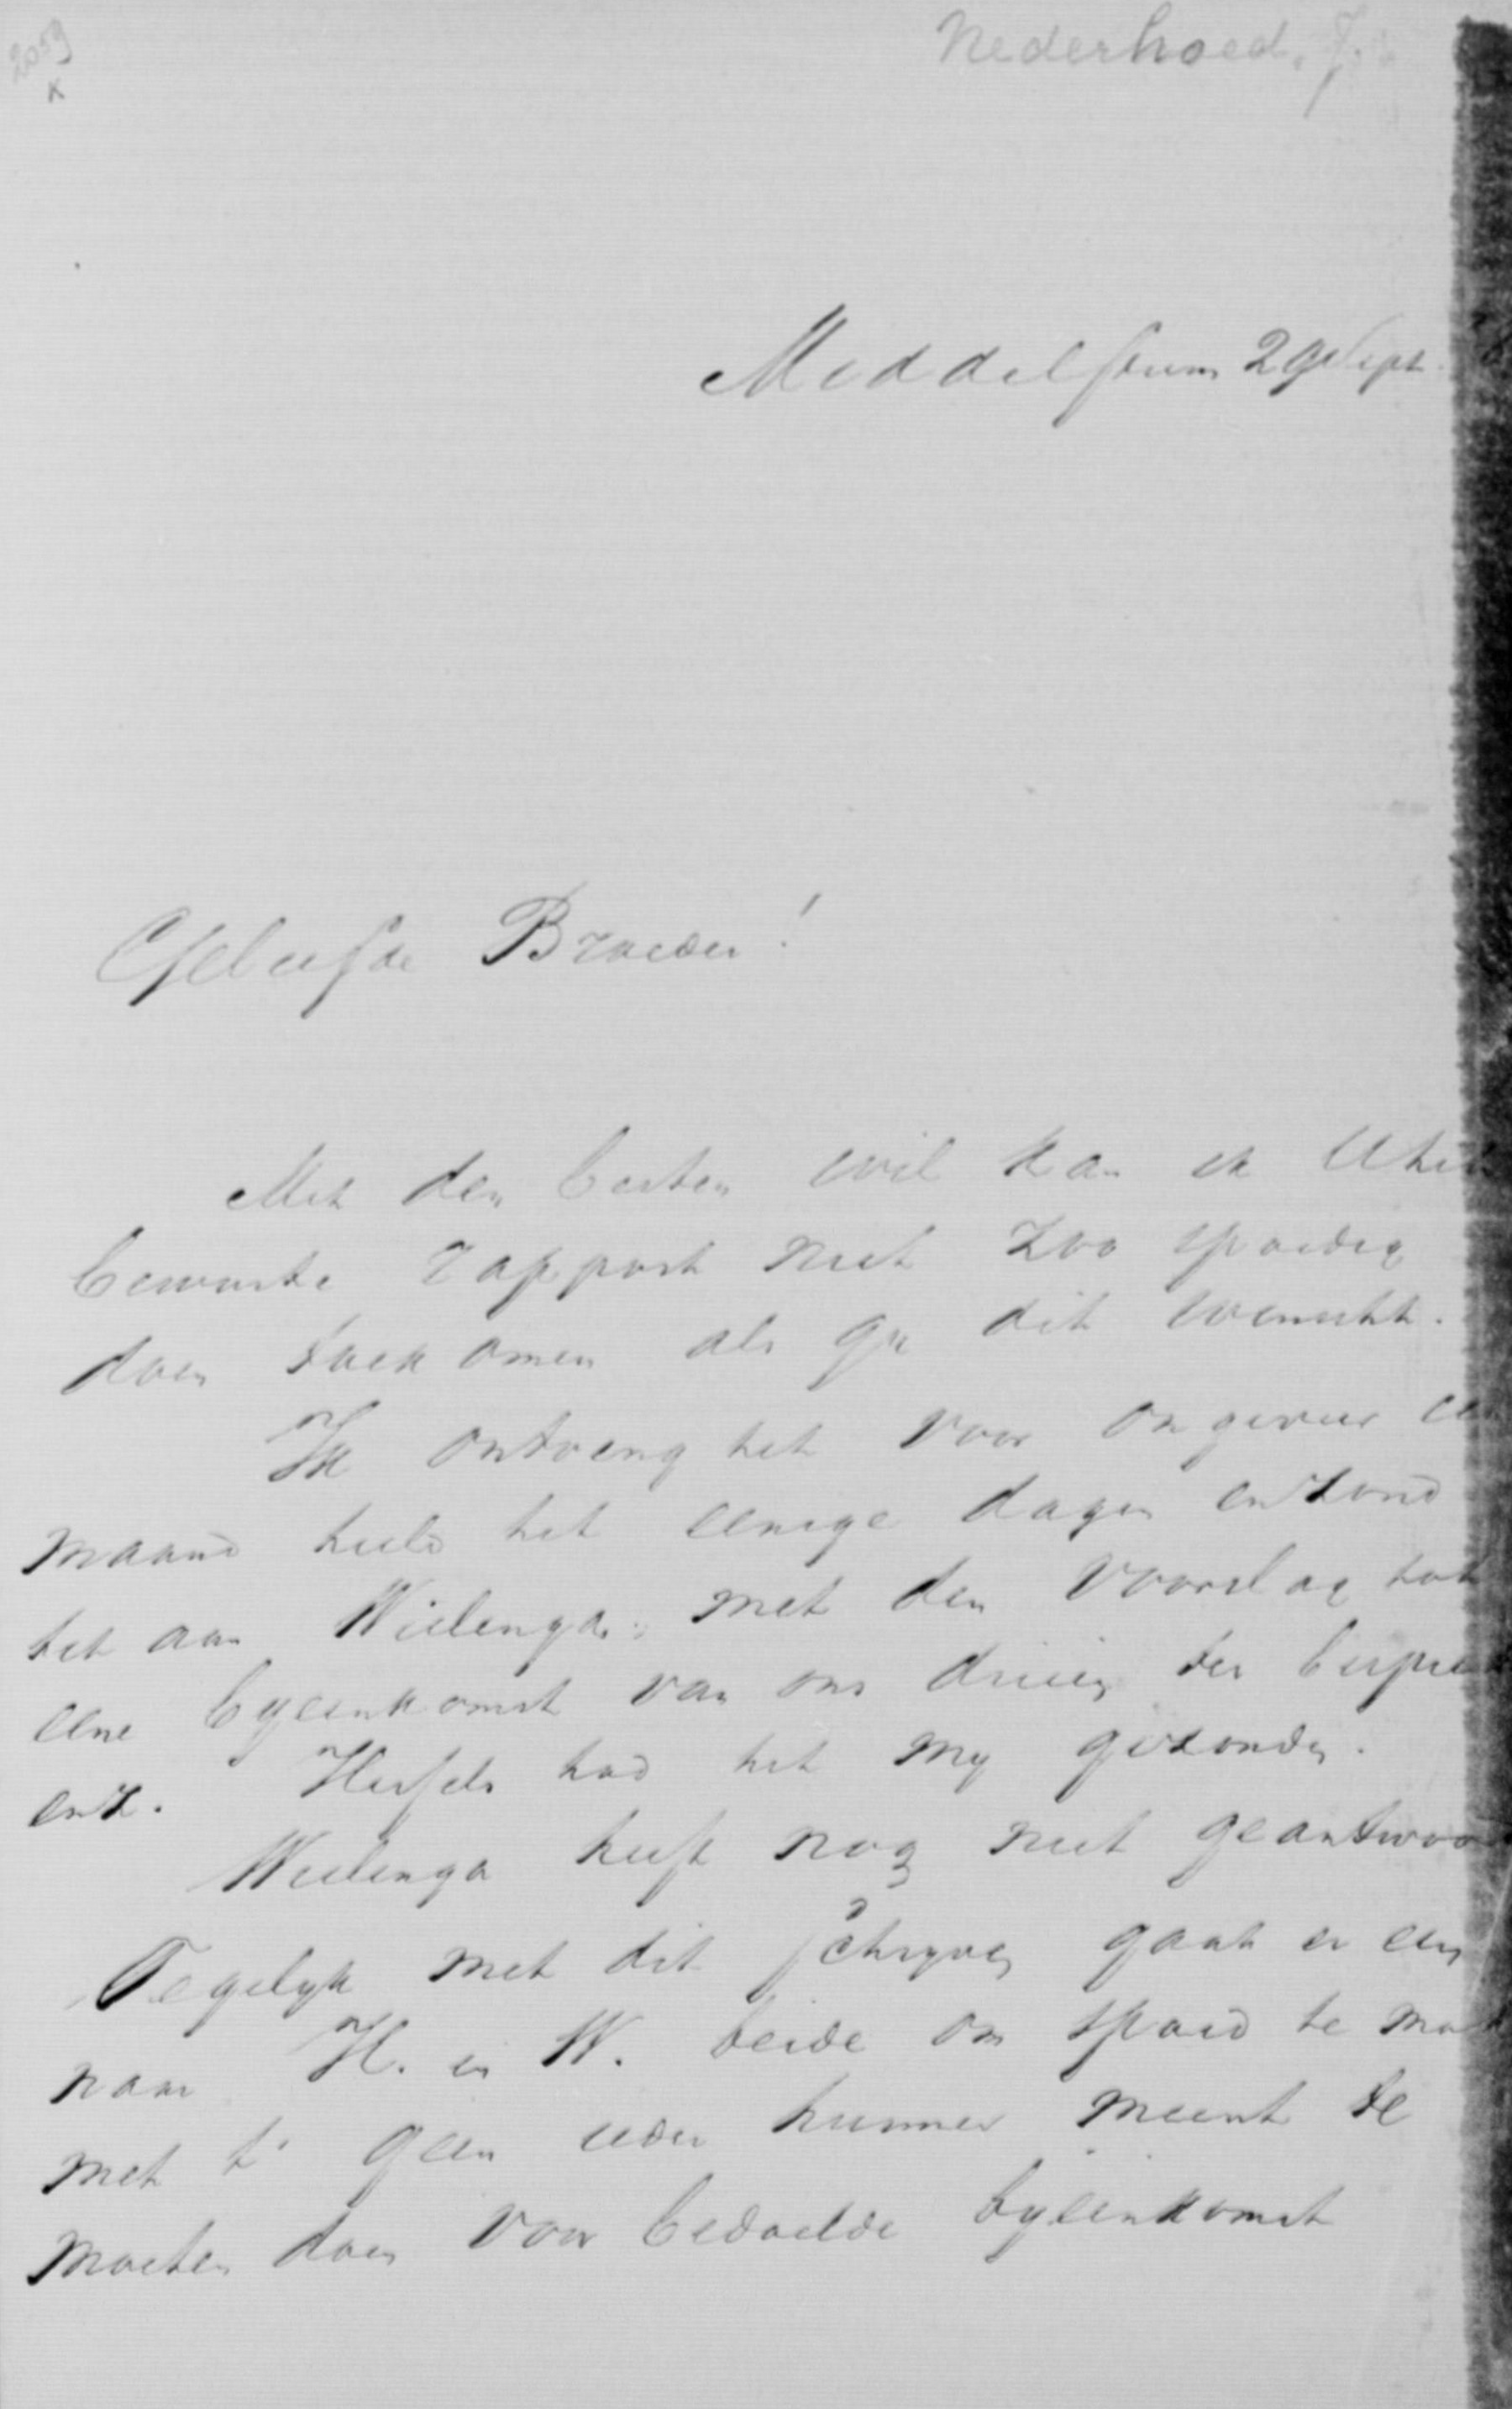 2059
x
Nederhoed, J.
Middelstum 29 Sept.
Geliefde Broeder!
Met den besten wil kan ik U het
bewuste rapport niet zoo spoedig
doen toekomen als gij dit wenscht.
Ik ontving het voor ongeveer een
maand hield het eenige dagen en zond
het aan Wielenga, met den voorslag tot
eene bijeenkomst van ons drieën ter
enz. Hessels had het mij gezonden.
Wielenga heeft nog niet geantwoo
Tegelijk met dit schrijven gaat er een
naar H. en W. beide om spoed te
met 't geen ieder hunner meent te
moeten doen voor bedoelde bijeenkomst